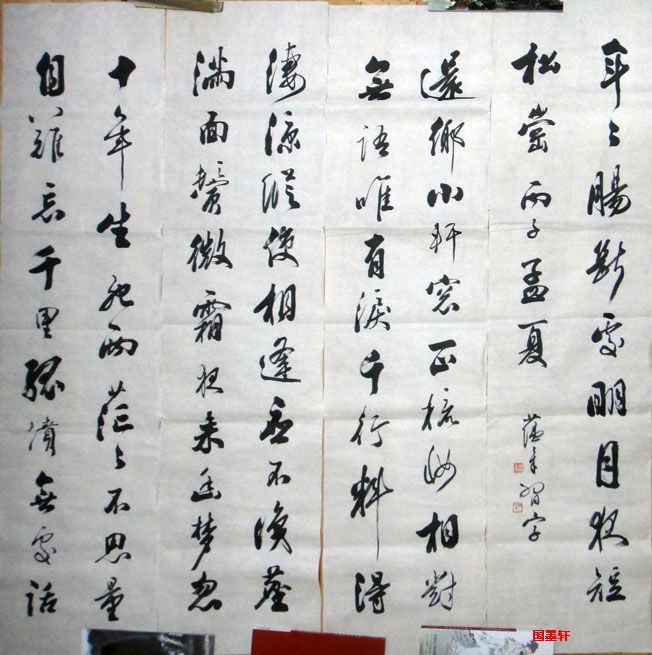 十年生死两茫々不思量
自難忘千里孤墳無處話
淒涼縱使相逢應不識塵
滿面鬢微霜夜来幽梦忽
還鄉小軒窓正梳妝相對
無語唯有淚千行料得
年々腸斷處明月夜短
松崗 丙子孟夏
習字
国墨轩